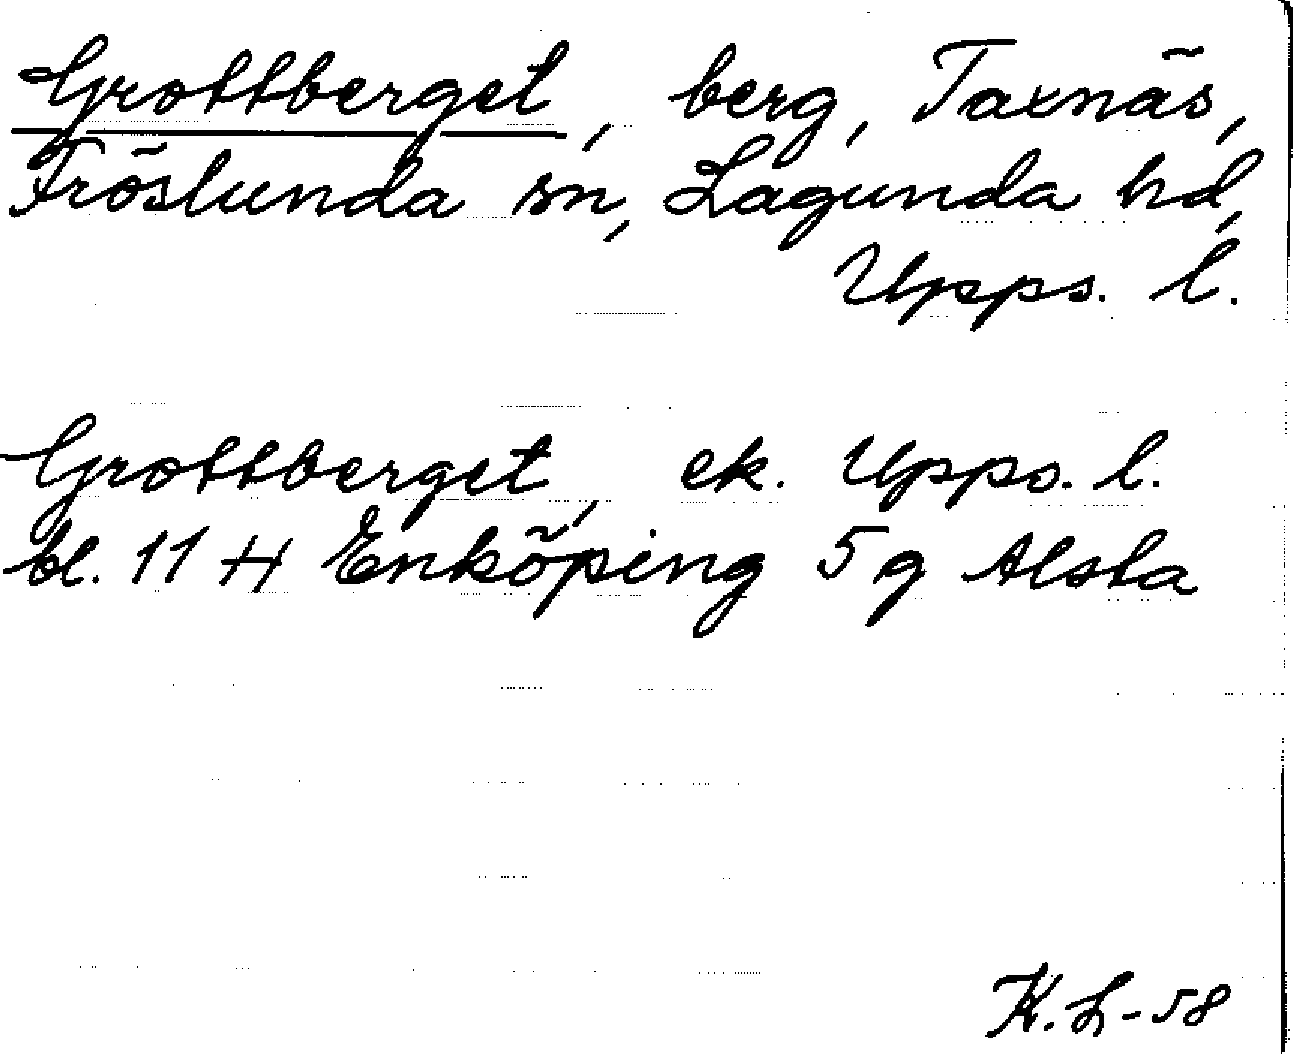 Grottberget, berg, Taxnäs,
Fröslunda sn, Lagunda hd,
Upps. l.
Grottberget, ek. Upps. l.
bl. 11 H Enköping 5 g Alsta
K. L-58